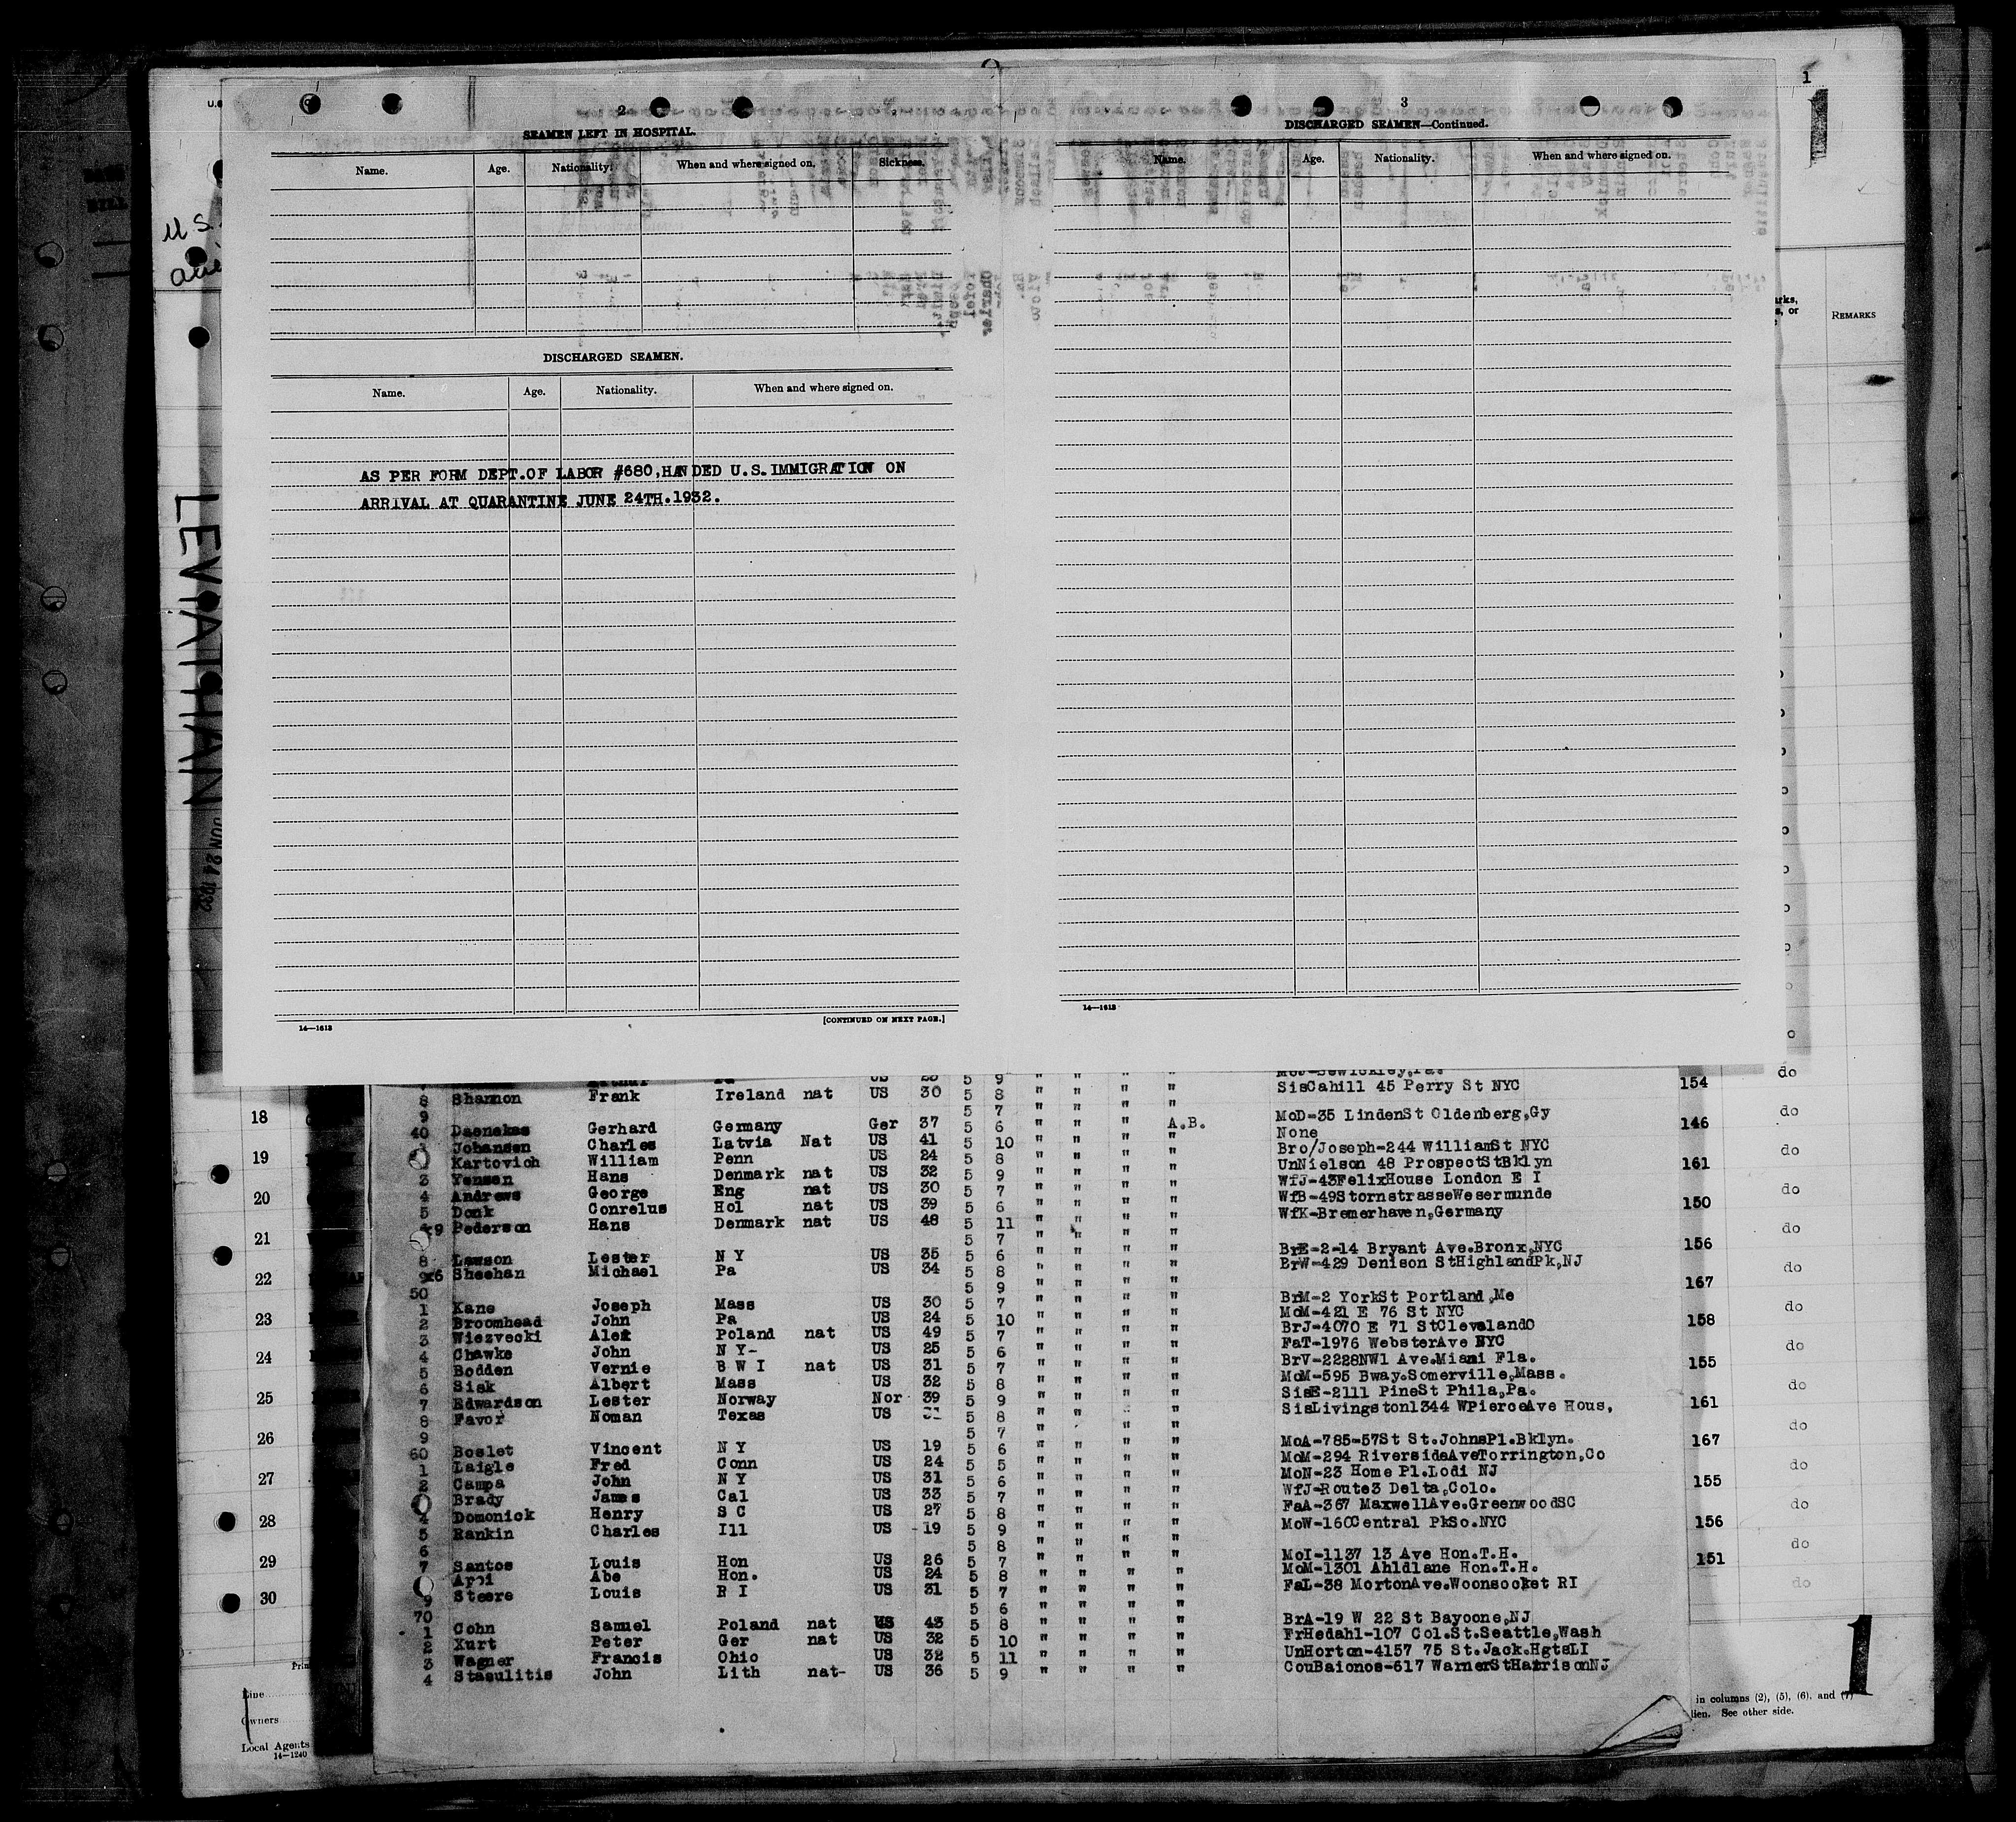 1
U.S.
2
SEAMEN LEFT IN HOSPITAL.
Name. Age. Nationality. When and where signed on. Sickness.
DISCHARGED SEAMEN.
Name. Age. Nationality. When and where signed on.
AS PER FORM DEPT.OF LABOR #680,HANDED U.S.IMMIGRATION ON
ARRIVAL AT QUARANTINE JUNE 24TH.1932.
14—1613 [CONTINUED ON NEXT PAGE.]
3
DISCHARGED SEAMEN—Continued.
Name. Age. Nationality. When and where signed on.
14—1613
REMARKS
LEVIATHAN JUN 24 1932
8 Shannon Frank Ireland nat US 30 5 8 " " " " SisCahill 45 Perry St NYC 154 do
9 5 7 " " " "
40 Daenekas Gerhard Germany Ger 37 5 6 " " " A.B. MoD-35 LindenSt Oldenberg,Gy 146 do
Johansen Charles Latvia Nat US 41 5 10 " " " " None
Kartovich William Penn US 24 5 8 " " " " Bro/Joseph-244 WilliamSt NYC do
3 Yensen Hans Denmark nat US 32 5 9 " " " " UnNielson 48 ProspectStBklyn 161
4 Andrews George Eng nat US 30 5 7 " " " " WfJ-43FelixHouse London E I do
5 Donk Conrelus Hol nat US 39 5 6 " " " " WfB-49StornstrasseWesermunde 150
x9 Pederson Hans Denmark nat US 48 5 11 " " " " WfK-Bremerhaven,Germany do
5 7 " " " "
8 Lawson Lester N Y US 35 5 6 " " " " BrE-2-14 Bryant Ave.Bronx,NYC 156
9x6 Sheehan Michael Pa US 34 5 8 " " " " BrW-429 Denison StHighlandPk,NJ do
50 5 9 " " " " 167
1 Kane Joseph Mass US 30 5 7 " " " " BrM-2 YorkSt Portland,Me do
2 Broomhead John Pa US 24 5 10 " " " " MoM-421 E 76 St NYC 158
3 Wiezvecki Alek Poland nat US 49 5 7 " " " " BrJ-4070 E 71 StClevelandO
4 Chawke John N Y- US 25 5 6 " " " " FaT-1976 WebsterAve NYC do
5 Bodden Vernie B W I nat US 31 5 7 " " " " BrV-2228NW1 Ave.Miami Fla. 155
6 Sisk Albert Mass US 32 5 8 " " " " MoM-595 Bway.Somerville,Mass. do
7 Edwardson Lester Norway Nor 39 5 9 " " " " SisE-2111 PineSt Phila,Pa. 161
8 Favor Noman Texas US 31 5 8 " " " SisLivingston1344 WPierceAve Hous, do
9 5 7 " " "
60 Boslet Vincent N Y US 19 5 6 " " " " MoA-785-57St St.JohnsPl.Bklyn. 167
1 Laigle Fred Conn US 24 5 5 " " " " MoM-294 RiversideAveTorrington,Co do
2 Campa John N Y US 31 5 6 " " " " MoN-23 Home Pl.Lodi NJ 155
Brady James Cal US 33 5 7 " " " " WfJ-Route3 Delta,Colo.
4 Domonick Henry S C US 27 5 8 " " " " FaA-367 MaxwellAve.GreenwoodSC do
5 Rankin Charles Ill US 19 5 9 " " " " MoW-160Central PkSo.NYC 156
6 5 8 " " " "
7 Santos Louis Hon US 26 5 7 " " " " MoI-1137 13 Ave Hon.T.H. 151 do
Abe Hon. US 24 5 8 " " " " MoM-1301 Ahldlane Hon.T.H.
9 Steere Louis R I US 31 5 7 " " " " FaL-38 MortonAve.Woonsocket RI do
70 5 6 " " " "
1 Cohn Samuel Poland nat US 43 5 8 " " " " BrA-19 W 22 St Bayoone,NJ
2 Kurt Peter Ger nat US 32 5 10 " " " " FrHedahl-107 Col.St.Seattle,Wash
3 Wagner Francis Ohio US 32 5 11 " " " " UnHorton-4157 75 St.Jack.HgtsLI
4 Stasulitis John Lith nat- US 36 5 9 " " " " CouBaionos-617 WarnerStHarrisonNJ
18
19
20
21
22
23
24
25
26
27
28
29
30
Line
Owners
Local Agents
14—1240
in columns (2), (5), (6), and (7)
lien. See other side.
1